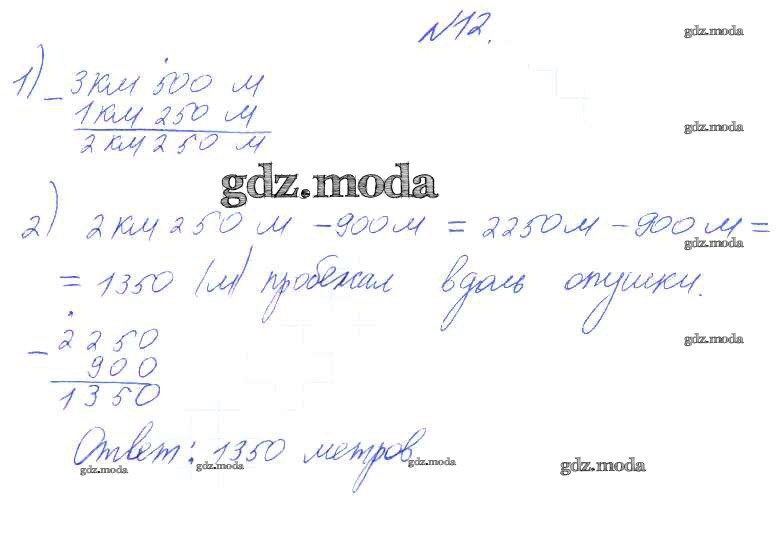 N12. gdz.moda
1) - 3 км 500 м
1 км 250 м
gdz.moda
2 км 250 м
gdz.moda
2) 2 км 250 м - 900 м = 2250 м - 900 м =
gdz.moda
= 1350 (м) пробежал вдоль опушки.
- 2250
gdz.moda
900
1350
Ответ: 1350 метров
gdz.moda gdz.moda gdz.moda gdz.moda